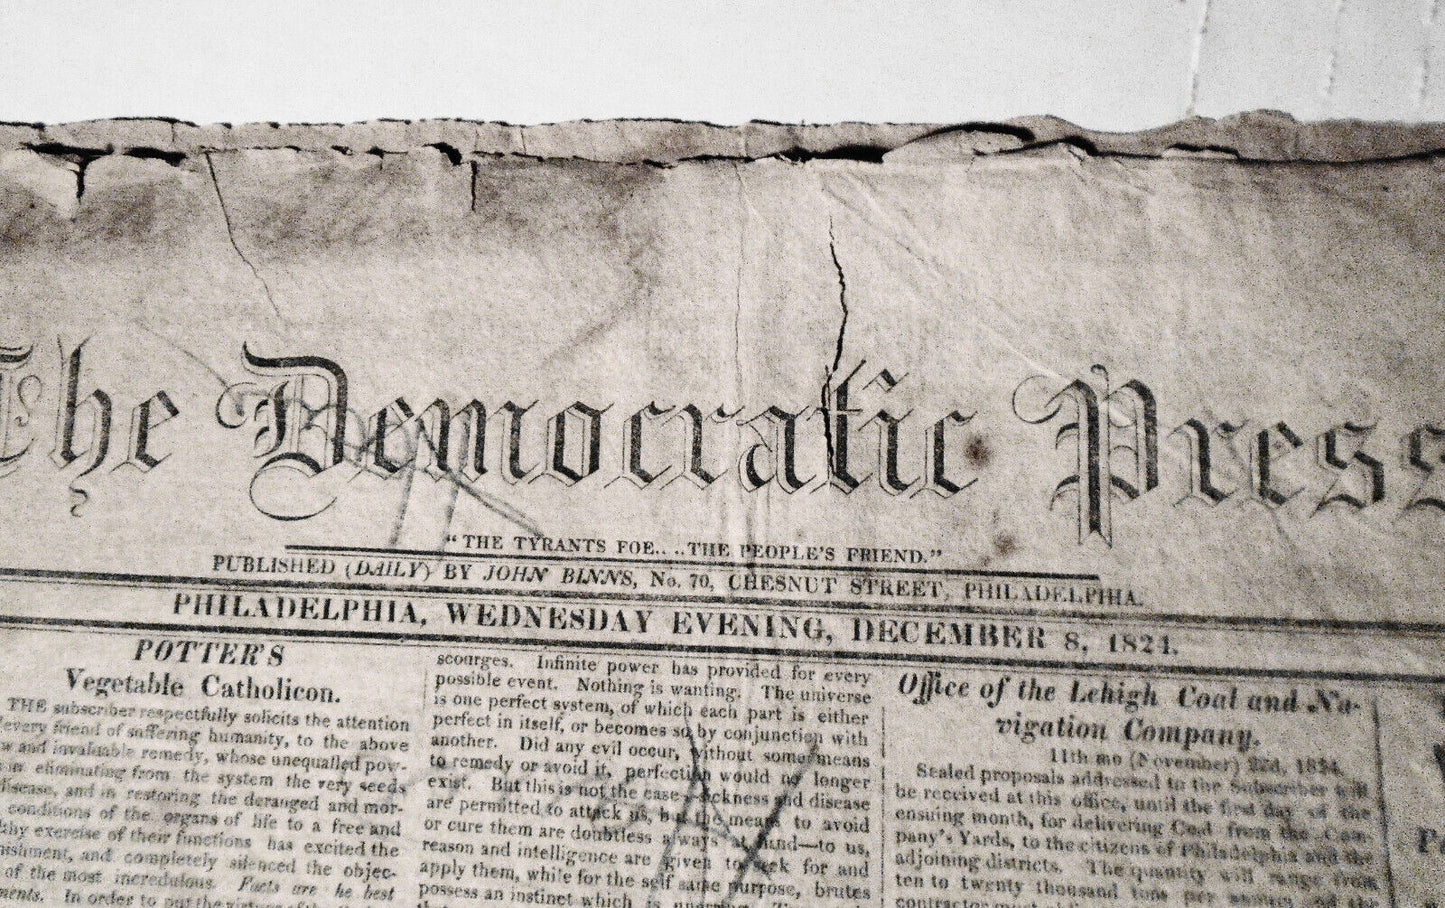 The Democratic Press
"THE TYRANTS FOE.. ..THE PEOPLE'S FRIEND."
PUBLISHED (DAILY) BY JOHN BINNS, No. 70, CHESNUT STREET, PHILADELPHIA.
PHILADELPHIA, WEDNESDAY EVENING, DECEMBER 8, 1824.
POTTER'S
Vegetable Catholicon.
THE subscriber respectfully solicits the attention
every friend of suffering humanity, to the above
and invaluable remedy, whose unequalled pow-
in eliminating from the system the very seeds
disease, and in restoring the deranged and mor-
conditions of the organs of life to a free and
exercise of their functions has excited the
and completely silenced the objec-
of the most incredulous. Facts are he best
In order to put the
scourges. Infinite power has provided for every
possible event. Nothing is wanting. The universe
is one perfect system, of which each part is either
perfect in itself, or becomes so by conjunction with
another. Did any evil occur, without some means
to remedy or avoid it, perfection would no longer
exist. But this is not the case—sickness and disease
are permitted to attack us, but the means to avoid
or cure them are doubtless always at hand—to us,
reason and intelligence are given to seek for and
apply them, while for the self same purpose, brutes
possess an instinct which is
Office of the Lehigh Coal and Na-
vigation Company.
11th mo (November) 22d, 1824.
Sealed proposals addressed to the Subscriber will
be received at this office, until the first day of the
ensuing month, for delivering Coal from the Com-
pany's Yards, to the citizens of Philadelphia and the
adjoining districts. The quantity will range from
ten to twenty thousand tons per annum and the